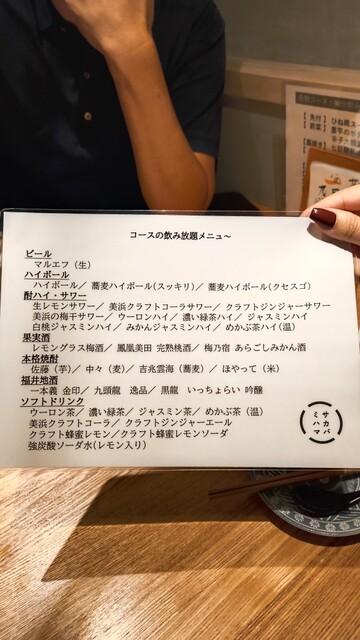 コースの飲み放題メニュー〜
ビール
マルエフ（生）
ハイボール
ハイボール／ 蕎麦ハイボール(スッキリ)／ 蕎麦ハイボール(クセスゴ)
酎ハイ・サワー
生レモンサワー／ 美浜クラフトコーラサワー／ クラフトジンジャーサワー
美浜の梅干サワー／ ウーロンハイ／ 濃い緑茶ハイ／ ジャスミンハイ
白桃ジャスミンハイ／ みかんジャスミンハイ／ めかぶ茶ハイ(温)
果実酒
レモングラス梅酒／ 鳳凰美田 完熟桃酒／ 梅乃宿 あらごしみかん酒
本格焼酎
佐藤（芋）／ 中々（麦）／ 吉兆雲海（蕎麦）／ ほやって（米）
福井地酒
一本義 金印／ 九頭龍 逸品／ 黒龍 いっちょらい 吟醸
ソフトドリンク
ウーロン茶／ 濃い緑茶／ ジャスミン茶／ めかぶ茶（温）
美浜クラフトコーラ／ クラフトジンジャーエール
クラフト蜂蜜レモン／クラフト蜂蜜レモンソーダ
強炭酸ソーダ水(レモン入り)
サカバ
ミハマ
先付
前菜